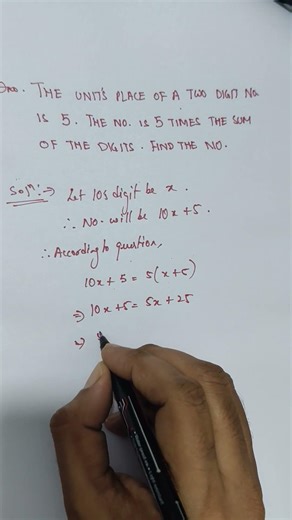 Ques. THE UNIT'S PLACE OF A TWO DIGIT NO.
IS 5. THE NO. IS 5 TIMES THE SUM
OF THE DIGITS. FIND THE NO.
Solⁿ:→ Let 10s digit be x.
∴ No. will be 10x+5.
∴ According to question,
10x + 5 = 5(x+5)
⇒ 10x+5 = 5x+25
⇒